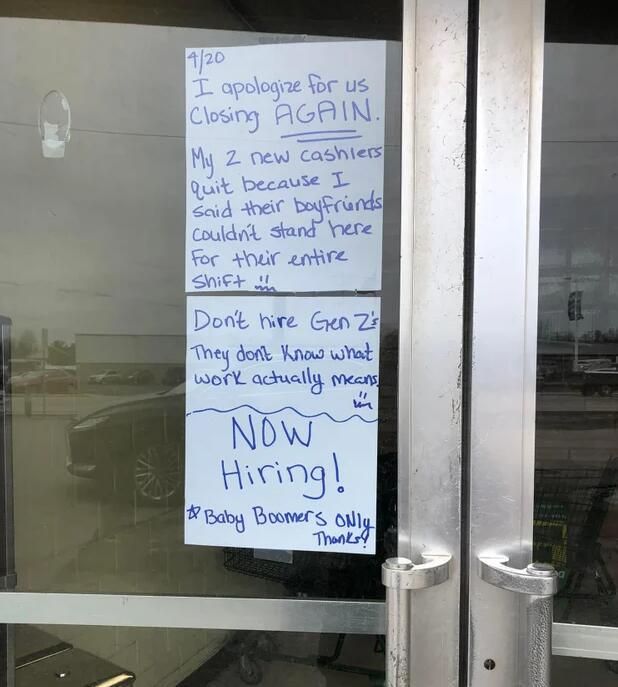 4/20
I apologize for us
Closing AGAIN.
My 2 new cashiers
quit because I
said their boyfriends
couldn't stand here
for their entire
Shift
Don't hire Gen Z's
They don't know what
work actually means
NOW
Hiring!
☆ Baby Boomers ONly
Thanks!